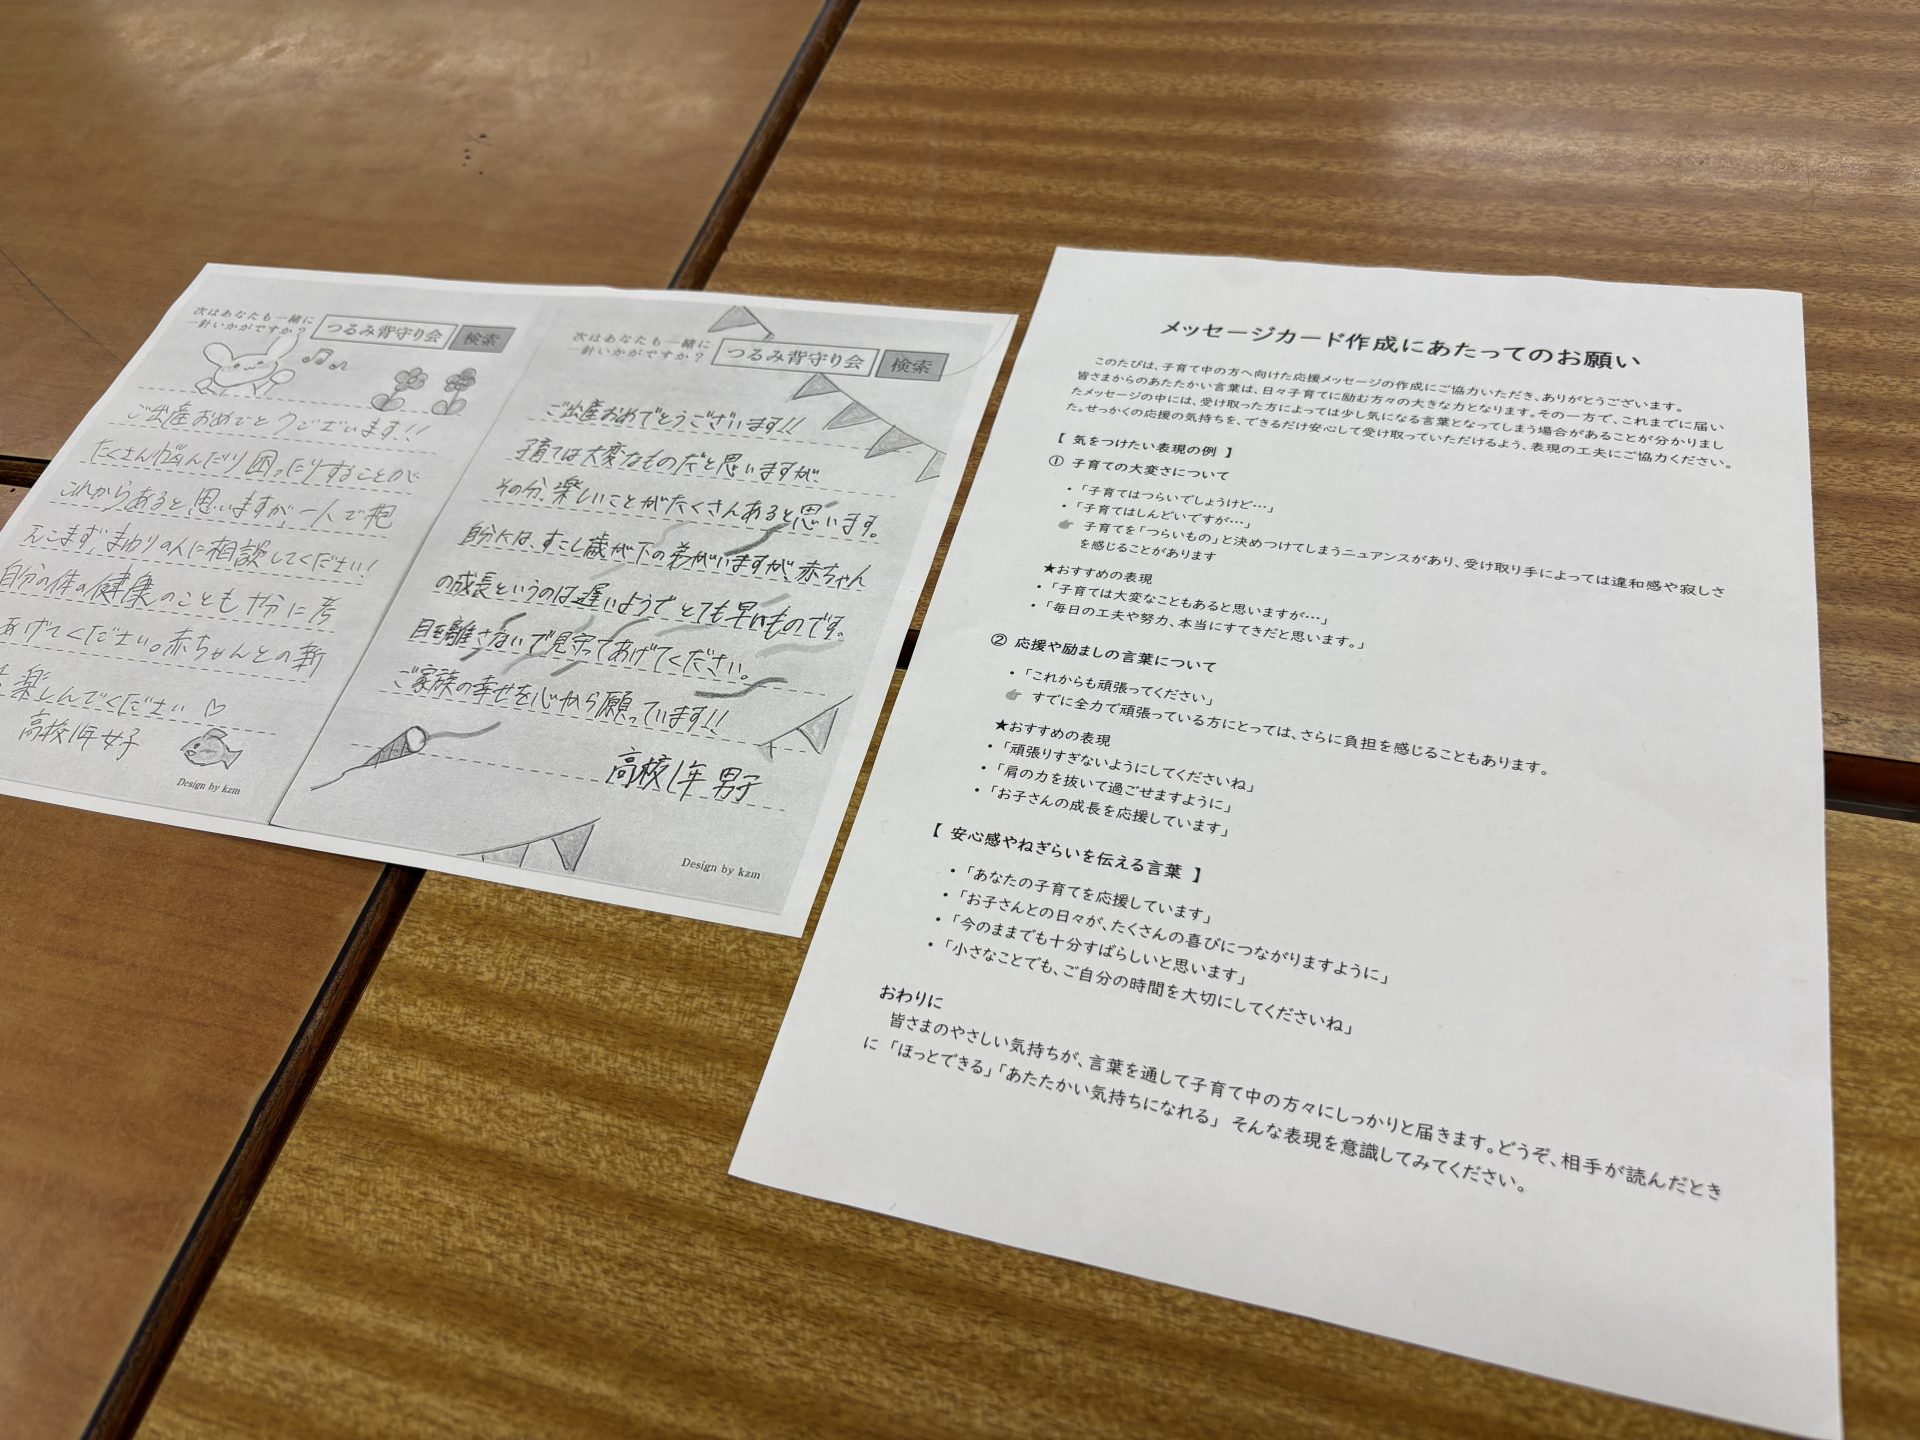 次はあなたも一緒に
一針いかがですか?
つるみ背守り会 検索
ご出産おめでとうございます!!
たくさん悩んだり困ったりすることが
これからあると思いますが、一人で抱
えこまず、まわりの人に相談してください!
自分の体の健康のことも十分に考
あげてください。赤ちゃんとの新
楽しんでください♡
高校1年女子
Design by kzm
次はあなたも一緒に
一針いかがですか?
つるみ背守り会 検索
ご出産おめでとうございます!!
子育ては大変なものだと思いますが、
その分、楽しいことがたくさんあると思います。
自分は、すこし歳が下の弟がいますが、赤ちゃん
の成長というのは遅いようでとても早いものです。
目を離さないで見守ってあげてください。
ご家族の幸せを心から願っています!!
高校1年 男子
Design by kzm
メッセージカード作成にあたってのお願い
このたびは、子育て中の方へ向けた応援メッセージの作成にご協力いただき、ありがとうございます。
皆さまからのあたたかい言葉は、日々子育てに励む方々の大きな力となります。その一方で、これまでに届い
たメッセージの中には、受け取った方によっては少し気になる言葉となってしまう場合があることが分かりまし
た。せっかくの応援の気持ちを、できるだけ安心して受け取っていただけるよう、表現の工夫にご協力ください。
【 気をつけたい表現の例 】
① 子育ての大変さについて
・「子育てはつらいでしょうけど…」
・「子育てはしんどいですが…」
☞ 子育てを「つらいもの」と決めつけてしまうニュアンスがあり、受け取り手によっては違和感や寂しさ
を感じることがあります
★おすすめの表現
・「子育ては大変なこともあると思いますが…」
・「毎日の工夫や努力、本当にすてきだと思います。」
② 応援や励ましの言葉について
・「これからも頑張ってください」
☞ すでに全力で頑張っている方にとっては、さらに負担を感じることもあります。
★おすすめの表現
・「頑張りすぎないようにしてくださいね」
・「肩の力を抜いて過ごせますように」
・「お子さんの成長を応援しています」
【 安心感やねぎらいを伝える言葉 】
・「あなたの子育てを応援しています」
・「お子さんとの日々が、たくさんの喜びにつながりますように」
・「今のままでも十分すばらしいと思います」
・「小さなことでも、ご自分の時間を大切にしてくださいね」
おわりに
皆さまのやさしい気持ちが、言葉を通して子育て中の方々にしっかりと届きます。どうぞ、相手が読んだとき
に「ほっとできる」「あたたかい気持ちになれる」そんな表現を意識してみてください。